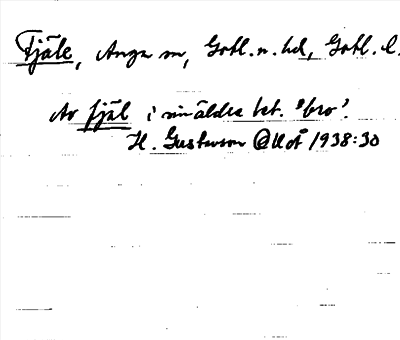 Fjäle, Anga sn, Gotl. n. hd, Gotl. l.
Av fjäl i sin äldre bet. 'bro'.
H. Gustavson GUÅ 1938:30